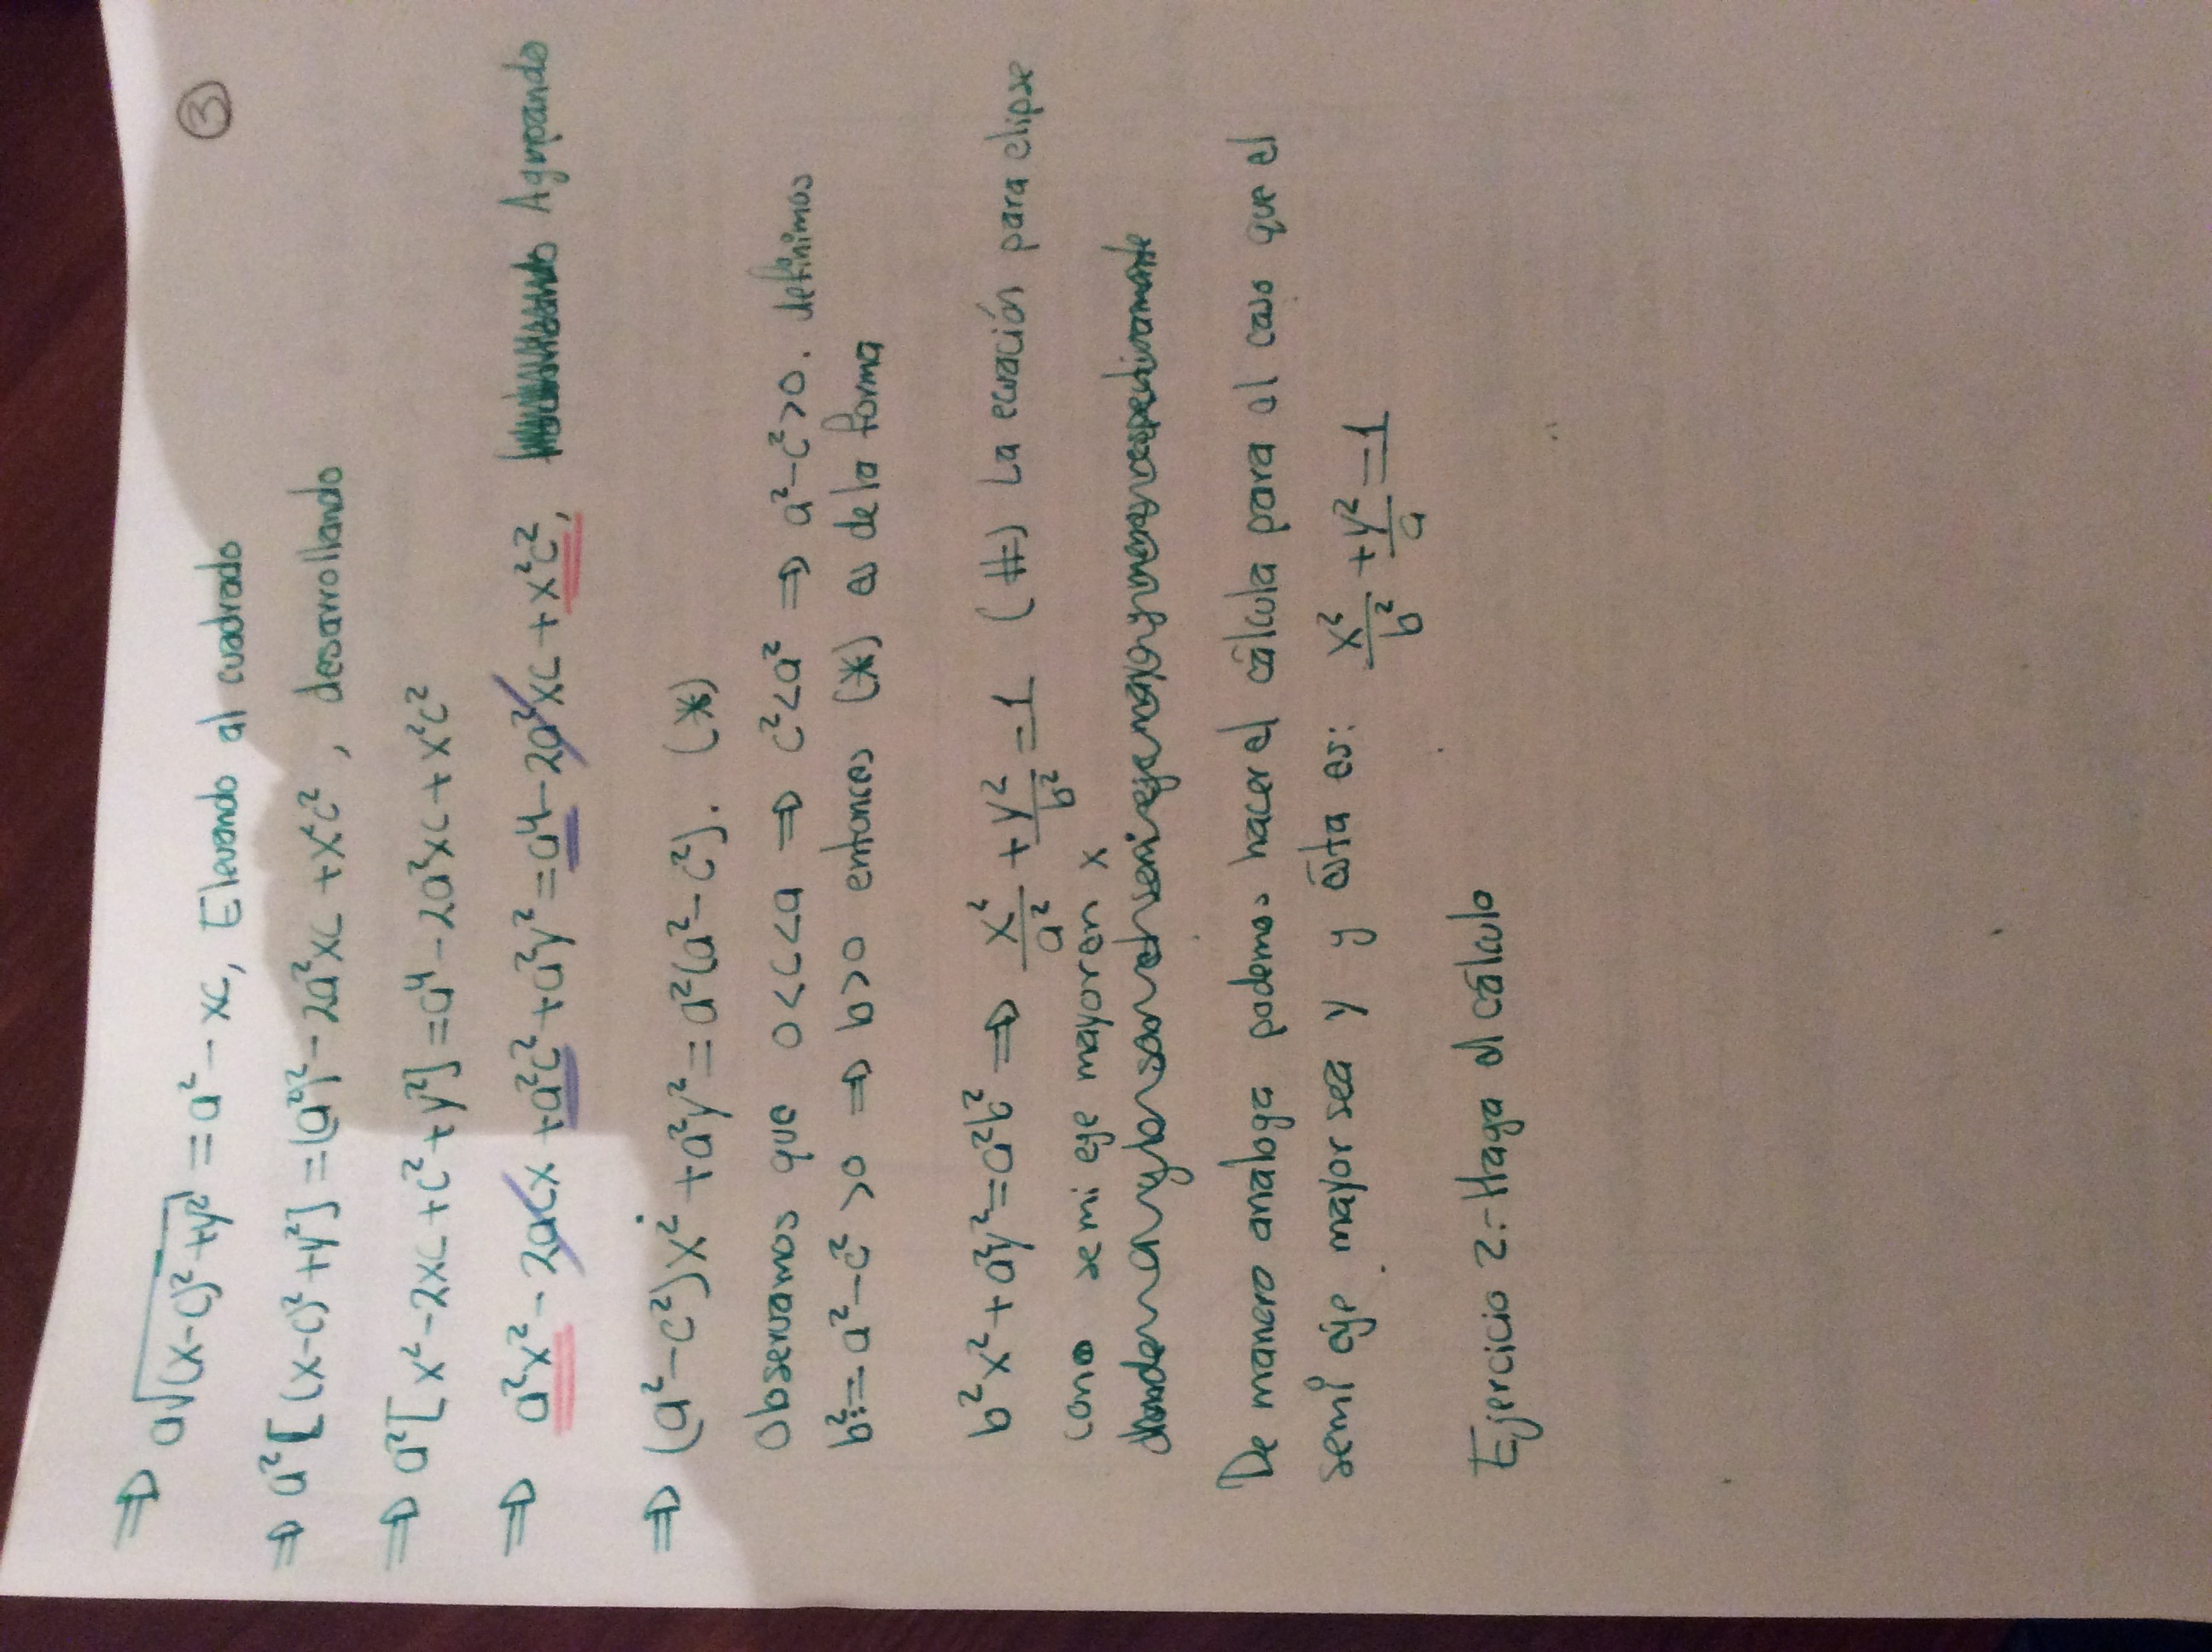 ③
⇒ a√((x-c)²+y²) = a² - xc, Elevando al cuadrado
⇒ a²[(x-c)²+y²] = (a²)² - 2a²xc + x²c², desarrollando
⇒ a²[x²-2xc+c²+y²] = a⁴ - 2a²xc + x²c²
⇒ a²x² - 2a²cx + a²c² + a²y² = a⁴ - 2a²xc + x²c², Agrupando
⇒ (a²-c²)x² + a²y² = a²(a²-c²). (*)
Observamos que 0<c<a ⇒ c²<a² ⇒ a²-c²>0. definimos
b²:= a²-c²>0 ⇒ b>0 entonces (*) es de la forma
b²x² + a²y² = a²b² ⇒ x²/a² + y²/b² = 1 (#) La ecuación para elipse
con semi eje mayor en x
De manera analoga podemos hacer el cálcula para al caso que el
semi eje mayor sea y y ésta es: x²/b² + y²/a = 1
Ejercicio 2.- Haga el cálculo